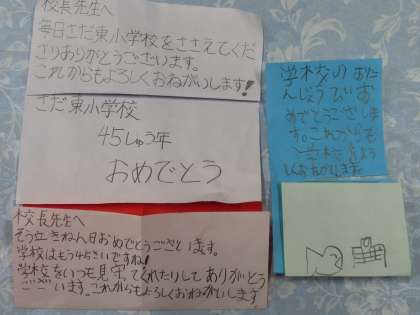 校長先生へ
毎日さだ東小学校をささえてくだ
さりありがとうございます。
これからもよろしくおねがいします!
さだ東小学校
45しゅう年
おめでとう
校長先生へ
そう立きねん日おめでとうございます。
学校はもう45さいですね!
学校をいつも見守てくれたりしてありがとう
ございます。これからもよろしくおねがいします
学校の
んじょうび お
めでとうござい
ます。これからも